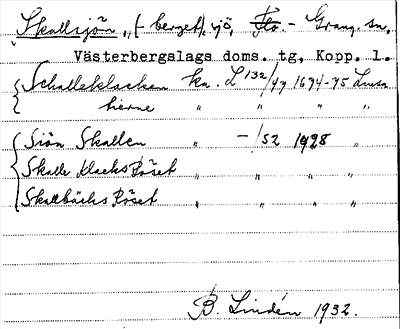 Skallsjön, (-berget), sjö, Flo. - Grang. sn,
Västerbergslags doms. tg, Kopp. l.
Schalleklacken ka. L 132/47 1694-95 Lusa
hierne " " " "
Siön Skallen " -/52 1928 "
Skalle klacks Röset " " " "
Skallbäcks Röset " " " "
B. Lindén 1932.